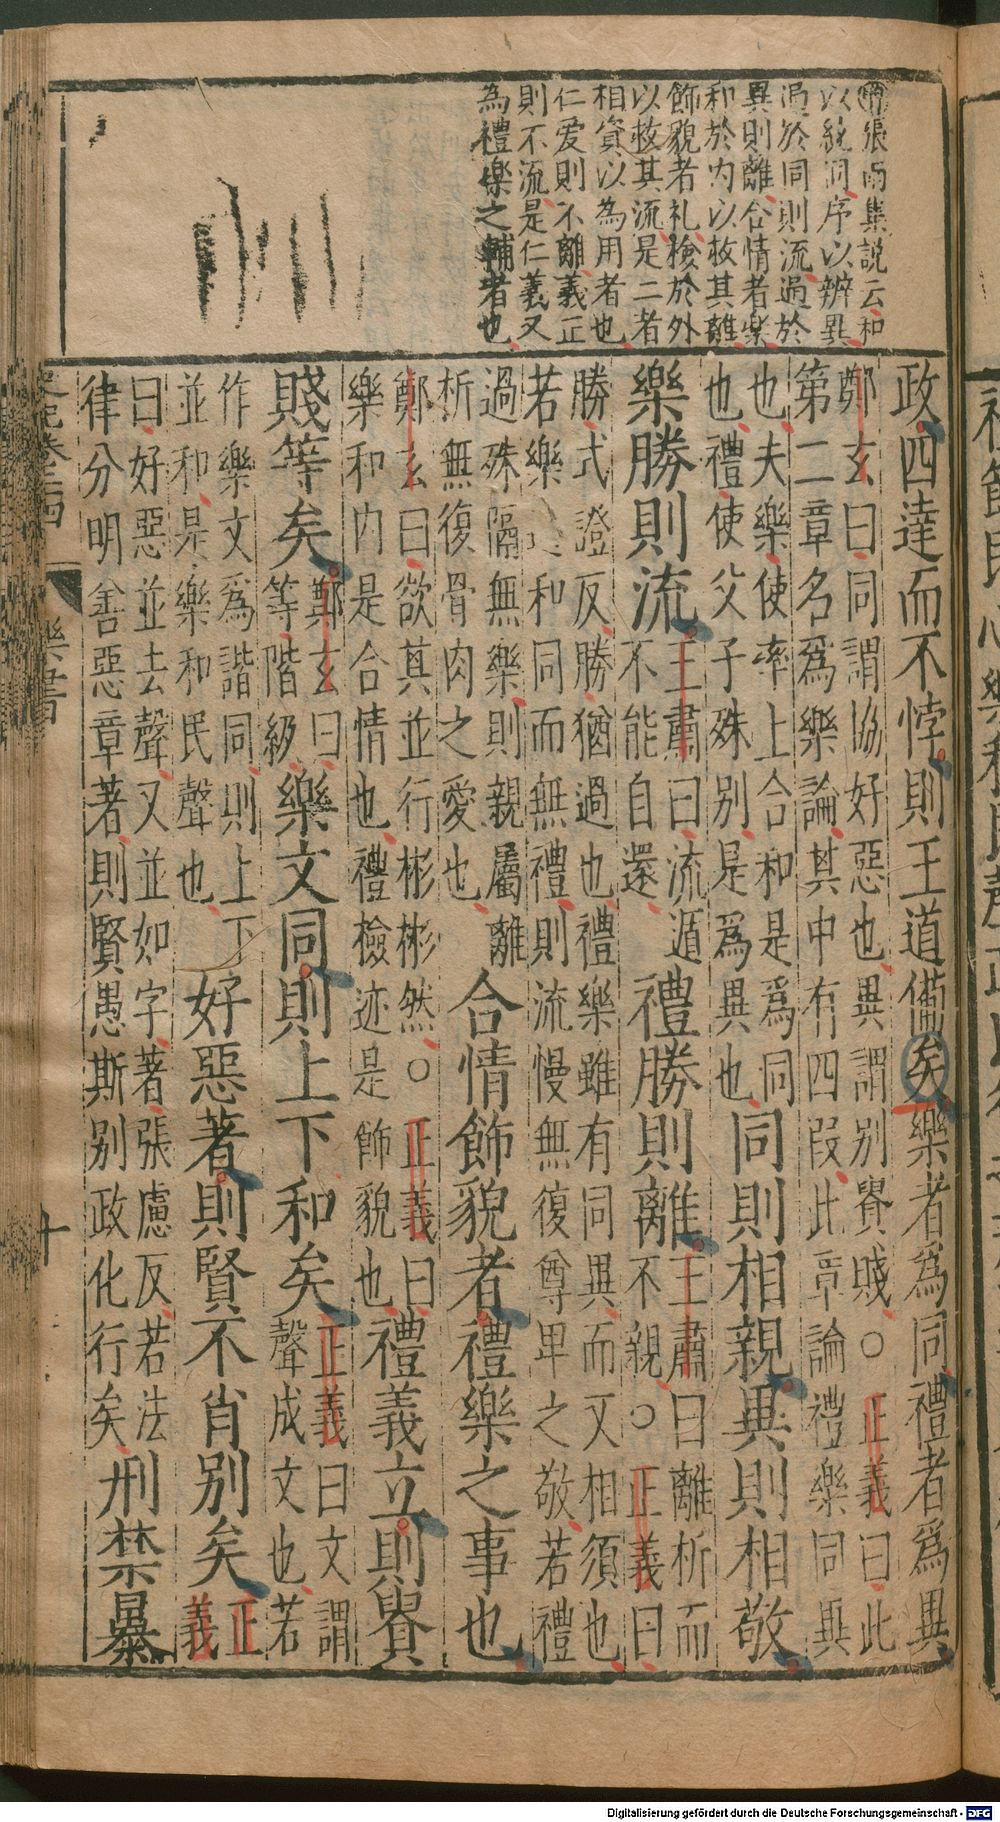 増張雨集説云和
以統同序以辨異
過於同則流過於
異則離合情者樂
和於内以救其離
飾貌者礼檢於外
以救其流是二者
相資以為用者也
仁爱則不離義正
則不流是仁義又
為禮樂之輔者也
政四達而不悖則王道備矣樂者爲同禮者爲異
鄭玄曰同謂協好惡也異謂別貴賤○正義曰此
第二章名爲樂論其中有四段此章論禮樂同異
也夫樂使率上合和是爲同
也禮使父子殊别是爲異也
同則相親異則相敬
樂勝則流
王肅曰流遁
不能自還
禮勝則離
王肅曰離析而
不親○正義曰
勝式證反勝猶過也禮樂雖有同異而又相須也
若樂過和同而無禮則流慢無復尊卑之敬若禮
過殊隔無樂則親屬離
析無復骨肉之愛也
合情飾貌者禮樂之事也
鄭玄曰欲其並行彬彬然○正義曰
樂和内是合情也禮檢迹是飾貌也
禮義立則貴
賤等矣
鄭玄曰
等階級
樂文同則上下和矣
正義曰文謂
聲成文也若
作樂文爲諧同則上下
並和是樂和民聲也
好惡著則賢不肖别矣
正
義
曰好惡並去聲又並如字著張慮反若法
律分明善惡章著則賢愚斯别政化行矣
刑禁暴
史記卷二十四
樂書
十
Digitalisierung gefördert durch die Deutsche Forschungsgemeinschaft - DFG